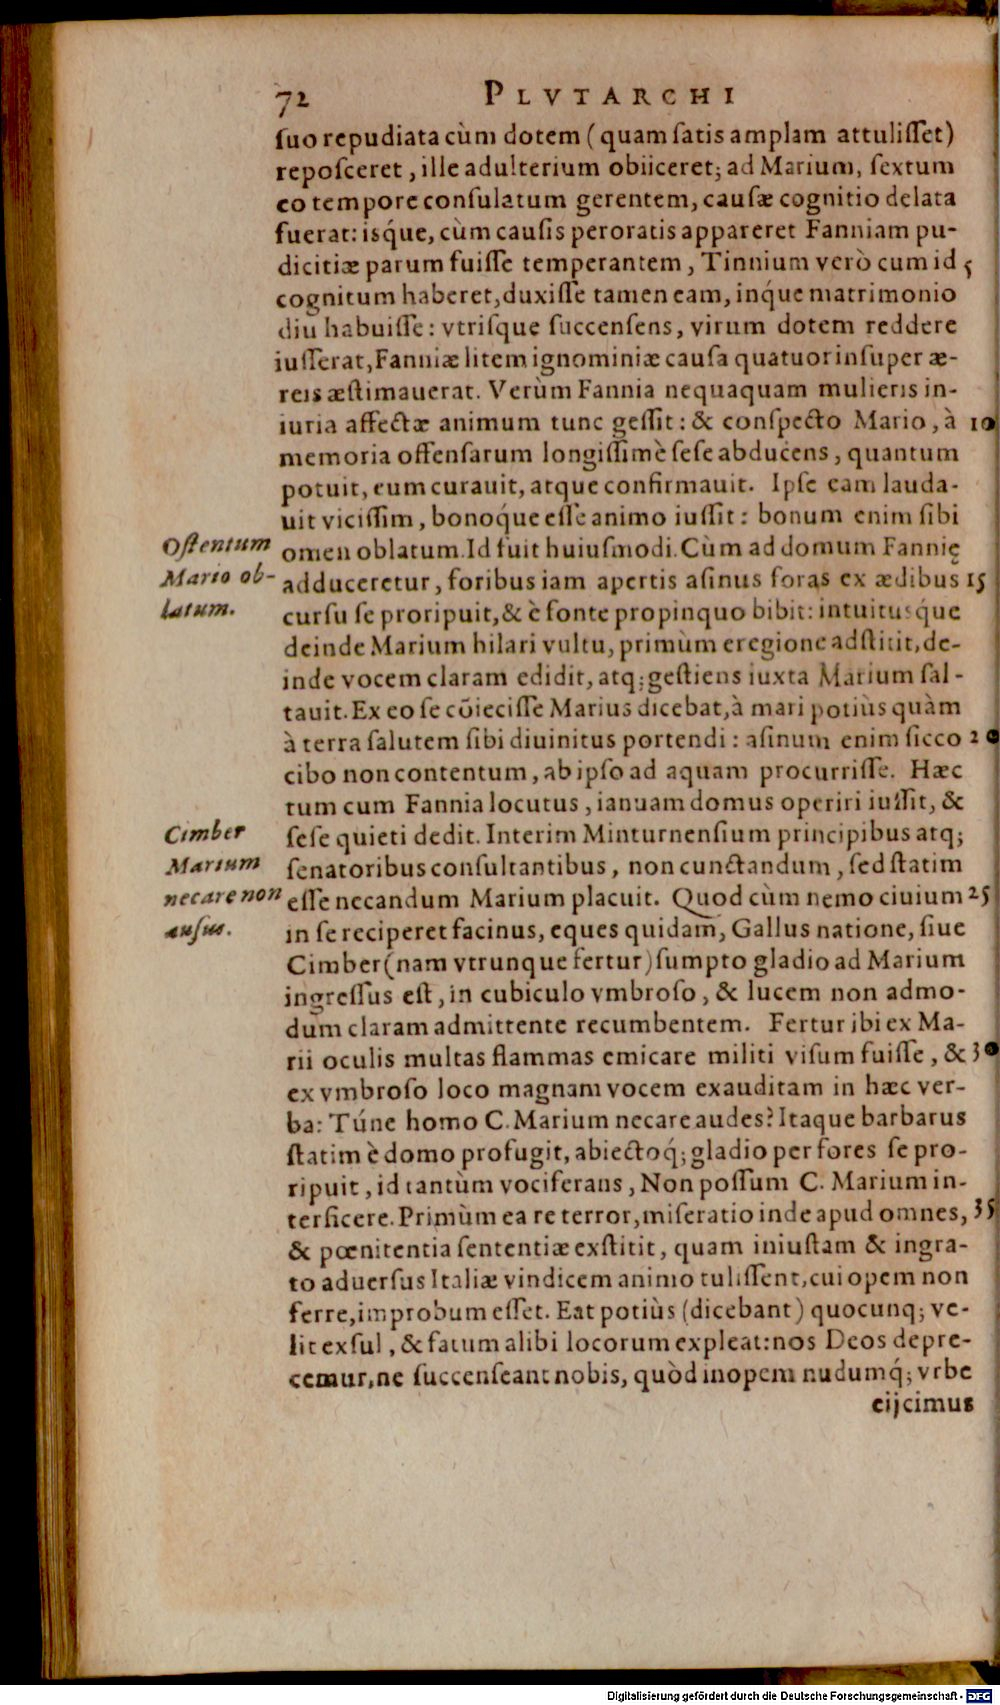 72 PLVTARCHI
ſuo repudiata cùm dotem (quam ſatis amplam attuliſſet)
repoſceret, ille adulterium obiiceret; ad Marium, ſextum
eo tempore conſulatum gerentem, cauſæ cognitio delata
fuerat: isq́ue, cùm cauſis peroratis appareret Fanniam pu-
dicitiæ parum fuiſſe temperantem, Tinnium verò cum id 5
cognitum haberet, duxiſſe tamen eam, inq́ue matrimonio
diu habuiſſe: vtriſque ſuccenſens, virum dotem reddere
iuſſerat, Fanniæ litem ignominiæ cauſa quatuor inſuper æ-
reis æſtimauerat. Verùm Fannia nequaquam mulieris in-
iuria affectæ animum tunc geſſit: & conſpecto Mario, à 10
memoria offenſarum longiſſimè ſeſe abducens, quantum
potuit, eum curauit, atque confirmauit. Ipſe eam lauda-
uit viciſſim, bonoq́ue eſſe animo iuſſit: bonum enim ſibi
Oſtentum omen oblatum. Id fuit huiuſmodi. Cùm ad domum Fannię
Mario ob- adduceretur, foribus iam apertis aſinus foras ex ædibus 15
latum. curſu ſe proripuit, & è fonte propinquo bibit: intuitusq́ue
deinde Marium hilari vultu, primùm eregione adſtitit, de-
inde vocem claram edidit, atq; geſtiens iuxta Marium ſal-
tauit. Ex eo ſe cōieciſſe Marius dicebat, à mari potiùs quàm
à terra ſalutem ſibi diuinitus portendi: aſinum enim ſicco 20
cibo non contentum, ab ipſo ad aquam procurriſſe. Hæc
tum cum Fannia locutus, ianuam domus operiri iuſſit, &
Cimber ſeſe quieti dedit. Interim Minturnenſium principibus atq;
Marium ſenatoribus conſultantibus, non cunctandum, ſed ſtatim
necare non eſſe necandum Marium placuit. Quod cùm nemo ciuium 25
auſus. in ſe reciperet facinus, eques quidam, Gallus natione, ſiue
Cimber (nam vtrunque fertur) ſumpto gladio ad Marium
ingreſſus eſt, in cubiculo vmbroſo, & lucem non admo-
dum claram admittente recumbentem. Fertur ibi ex Ma-
rii oculis multas flammas emicare militi viſum fuiſſe, & 30
ex vmbroſo loco magnam vocem exauditam in hæc ver-
ba: Túne homo C. Marium necare audes? Itaque barbarus
ſtatim è domo profugit, abiectoq́; gladio per fores ſe pro-
ripuit, id tantùm vociferans, Non poſſum C. Marium in-
terficere. Primùm ea re terror, miſeratio inde apud omnes, 35
& pœnitentia ſententiæ exſtitit, quam iniuſtam & ingra-
to aduerſus Italiæ vindicem animo tuliſſent, cui opem non
ferre, improbum eſſet. Eat potiùs (dicebant) quocunq; ve-
lit exſul, & fatum alibi locorum expleat: nos Deos depre-
cemur, ne ſuccenſeant nobis, quòd inopem nudumq́; vrbe
eijcimus
Digitalisierung gefördert durch die Deutsche Forschungsgemeinschaft - DFG